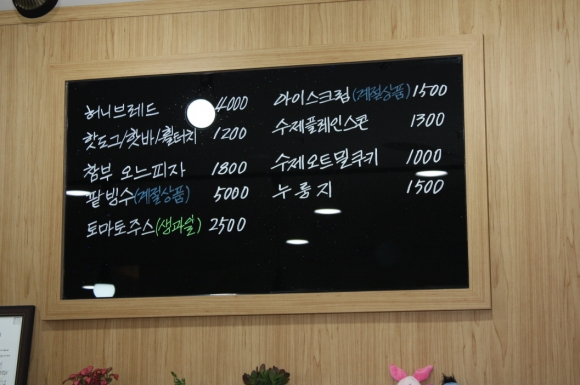 허니브레드 4000
핫도그/핫바/휠터치 1200
참부 오느피자 1800
팥빙수(계절상품) 5000
토마토주스(생과일) 2500
아이스크림(계절상품) 1500
수제플레인스콘 1300
수제오트밀쿠키 1000
누룽지 1500